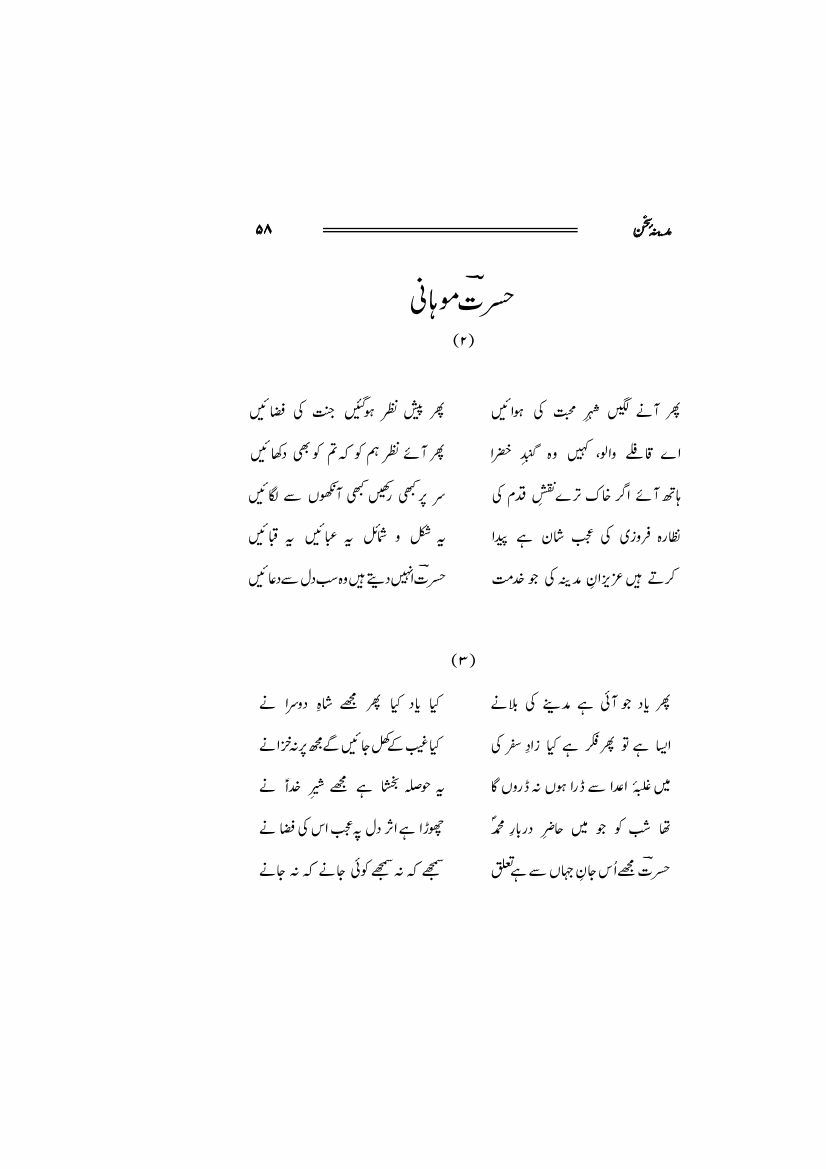 مدینۂ سخن ۵۸
حسرتؔ موہانی
(۲)
پھر آنے لگیں شہرِ محبت کی ہوائیں پھر پیشِ نظر ہوگئیں جنت کی فضائیں
اے قافلے والو، کہیں وہ گنبدِ خضرا پھر آئے نظر ہم کو کہ تم کو بھی دکھائیں
ہاتھ آئے اگر خاک ترے نقشِ قدم کی سر پر کبھی رکھیں کبھی آنکھوں سے لگائیں
نظارہ فروزی کی عجب شان ہے پیدا یہ شکل و شمائل یہ عبائیں یہ قبائیں
کرتے ہیں عزیزانِ مدینہ کی جو خدمت حسرتؔ انہیں دیتے ہیں وہ سب دل سے دعائیں
(۳)
پھر یاد جو آئی ہے مدینے کی بلانے کیا یاد کیا پھر مجھے شاہِ دوسرا نے
ایسا ہے تو پھر فکر ہے کیا زادِ سفر کی کیا غیب کے کھل جائیں گے مجھ پر نہ خزانے
میں غلبۂ اعدا سے ڈرا ہوں نہ ڈروں گا یہ حوصلہ بخشا ہے مجھے شیرِ خداؑ نے
تھا شب کو جو میں حاضرِ دربارِ محمدؐ چھوڑا ہے اثر دل پہ عجب اس کی فضا نے
حسرتؔ مجھے اُس جانِ جہاں سے ہے تعلق سمجھے کہ نہ سمجھے کوئی جانے کہ نہ جانے